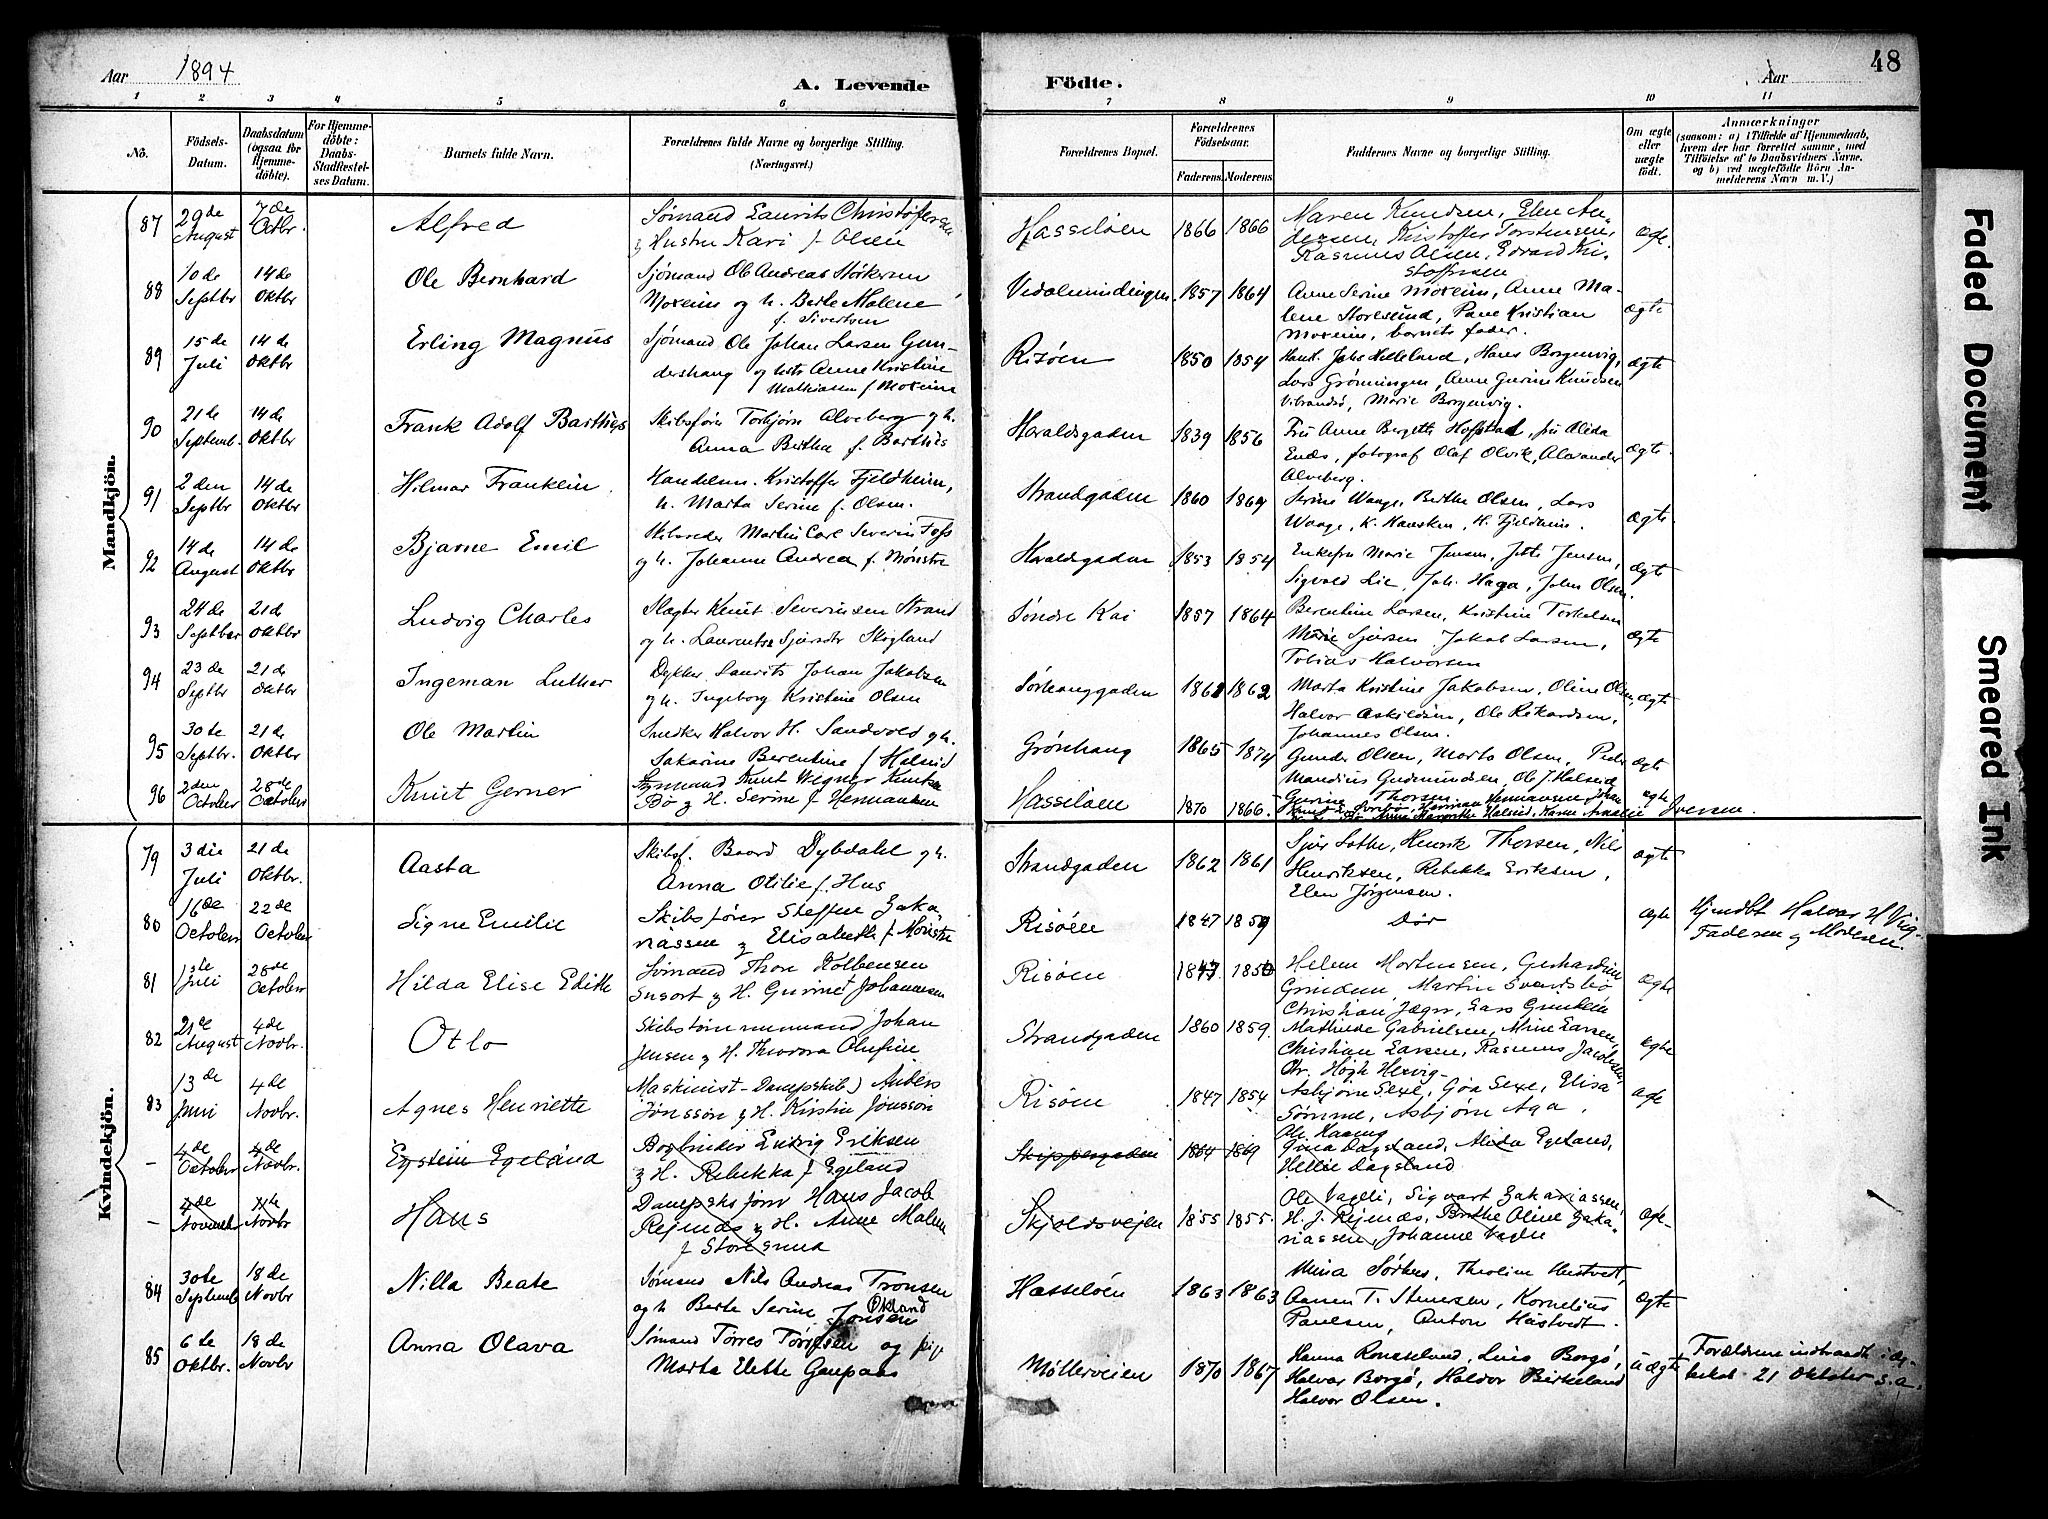 Aar 1894
A. Levende
Födte.
Aar
48
1 2 3 4 5 6 7 8 9 10 11
No.
Födsels-Datum.
Daabsdatum (ogsaa for Hjemme-döbte).
For Hjemme-döbte: Daabs-Stadfæstel-ses Datum.
Barnets fulde Navn.
Forældrenes fulde Navne og borgerlige Stilling. (Næringsvei.)
Forældrenes Bopæl.
Forældrenes Födselsaar.
Faderens. Moderens.
Faddernes Navne og borgerlige Stilling.
Om ægte eller uægte födt.
Anmærkninger
(saasom: a) i Tilfælde af Hjemmedaab, hvem der har forrettet samme, med Tilföielse af to Daabsvidners Navne, og b) ved uægtefödte Börn An-melderens Navn m. V.)
Mandkjön.
87 29de August 7de Octbr. Alfred
Sømand Laurits Christoffersen
& Hustru Kari f. Olsen
Hasseløen 1866 1866
Maren Knudsen, Elen An-
dersen, Kristoffer Torstensen,
Rasmus Olsen, Edvard Kri-
stoffersen
88 10de Septbr 14de Oktbr Ole Bernhard
Sjømand Ole Andreas Størkersen
Moxeim og h. Berte Malene
f. Sivertsen
1857 1864
Anne Serine Moxeim, Anne Ma-
lene Storesund, Kristian
Moxeim, barnets fader.
ægte
89 15de Juli 14de Oktbr Erling Magnus
Sjømand Ole Johan Larsen Gun-
dershaug og hstr Anne Kristine
Mathiasen f. Moxeim
Risøen 1850 1854
Hans Borgenvig,
Lars Grønningen, Anne Gurine Knudsen
Vibrandsø, Marie Borgenvig.
ægte
90 21de Septemb. 14de Oktbr Frank Adolf Barthies
Skibsfører Torbjørn Alveberg og h.
Anna Berthea f. Barthies
Haraldsgaden 1839 1856
Fru Anne Bergette Hofstad, fru Alida
Enes, fotograf Olaf Olvik, Alexander
Alveberg.
ægte
91 2den Septbr 14de Oktbr Hilmar Franklin
Handelsm. Kristoffer Fjeldheim,
h. Marta Serine f. Olsen.
Strandgaden 1860 1864
Serine Waage, Berthe Olsen, Lars
Waage, K. Hansken, H. Fjeldheim.
ægte
92 14de August 14de Oktbr Bjarne Emil
Skibsreder Martin Carl Severin
og h. Johanne Andrea f. Mønstre
Haraldsgaden 1853 1854
Enkefru Marie Jensen, Jensen,
Sigvald Lie, Joh. Haga, John Olsen.
ægte
93 24de Septber 21de Oktbr Ludvig Charles
Slagter Knut Severinsen Strand
og h. Laurentse Sjursdtr Skogland
Søndre Kai 1857 1864
Berentine Larsen, Kristine Torkelsen
Marie Sjursen Jakob Larsen,
Tobias Halvorsen
ægte
94 23de Septbr 21de Oktbr Ingeman Luther
Dykker Laurits Johan Jakobsen
og h. Ingeborg Kristine Olsen
Sørhauggaden 1862
Marta Kristine Jakobsen, Oline Olsen,
Halvor Askildsen, Ole Rikardsen,
Johannes Olsen.
ægte
95 30te Septbr. 21de Oktbr Ole Martin
Snedker Halvor H. Sandvold og h.
Sakarine Berentine f. Halseid
Grønhaug 1865 1874
Gunder Olsen, Marta Olsen, Peder
Mandius Gudmundsen, Ole J. Halseid
ægte
96 2den October 28de October Knut Gerner
Sømand Knut Wegner Knutsen
Bø & H. Serine f. Hermansen
Hasseløen 1870 1866
Gurine Thorsen
Iversen.
ægte
Kvindekjön.
79 3die Juli 21de Oktbr. Aasta
Skibsf. Baard Dybdahl og h.
Anna Otilie f. Hus
Strandgaden 1862 1861
Sjur Lothe, Henrik Thorsen, Nils
Henriksen, Rebekka Eriksen,
Elen Jørgensen.
ægte
80 16de October 22de October Signe Emilie
Skibsfører Steffen Zaka-
riassen & Elisabeth f. Mønstre
Risøen 1847 1859
Dør
ægte
Hjemdbt Halvar H Vig-
Faderen og Moderen.
81 1ste Juli 28de October Hilda Elise Edith
Sømand Thore Kolbensen
& H. Gurine Johannesen
Risøen 1847 1850
Helene Mortensen, Gerhardine
Martin Svendsbø
Christian Jæger, Lars
ægte
82 21de August 4de Novbr. Otto
Skibstømmermand Johan
Jensen & H. Theodora Olufine
Strandgaden 1860 1859.
Mathilde Gabrielsen, Mine Larsen,
Christian Larsen, Rasmus Jacobsen,
Chr. Høgh Hervig
ægte
83 13de Juni 4de Novbr. Agnes Henriette
Maskinist (Dampskib) Anders
Jonsson & H. Kirstin Jonsson
Risøen 1847 1854
Asbjørn Sexe, Gøa Sexe, Elisa
Sømme, Asbjørn Aga,
Ole Haaung
– 4de October 4de Novbr. Eystein Egeland
Bogbinder Ludvig Eriksen
& H. Rebekka f. Egeland
Skippergaden 1864 1869
Gina Dagsland, Alida Egeland,
Hellie Dagsland
– 4de November Novbr Hans
Dampskibsfører Hans Jacob
Rejmers & H. Anne Malene
f. Storesund
Skjoldsvejen 1855 1855.
Ole Vaglie, Sigvart Zakariassen,
H. J. Rejmers, Berthe Oline Zaka-
riassen, Johanne Vaglie
84 30te Septemb 18de Novbr Nilla Beate
Sømand Nils Andreas Tronsen
og h Berte Serine Jonsen Økland
Hasseløen 1863 1863
Mina Sørhus, Theoline Hustvedt,
Aanen T. Stenersen, Kornelius
Paulsen, Anton Hustvedt.
ægte
85 6te Oktbr. 18de Novbr Anna Olava
Sømand Tørres Tørresen og pige
Marta Vette Gaupaas
Møllerveien 1870 1867
Hanna Borgø,
Halvar Borgø, Haldor Birkeland
Halvor Olsen.
uægte
Forældrene indtraadt i æg-
teskab 21 Oktober s.a.
Faded Document
Smeared Ink